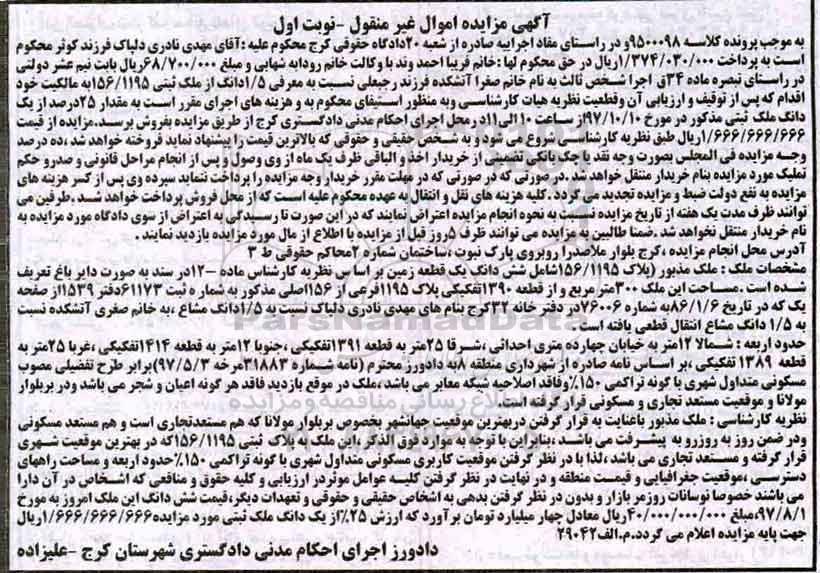 آگهی مزایده اموال غیر منقول -نوبت اول
به موجب پرونده کلاسه ۹۵۰۰۰۹۸و در راستای مفاد اجراییه صادره از شعبه ۲۰دادگاه حقوقی کرج محکوم علیه :آقای مهدی نادری دلپاک فرزند کوثر محکوم
است به پرداخت ۱/۳۷۴/۰۳۰/۰۰۰ریال در حق محکوم لها :خانم فریبا احمد وند با وکالت خانم رودابه شهابی و مبلغ ۶۸/۷۰۰/۰۰۰ریال بابت نیم عشر دولتی
در راستای تبصره ماده ۳۴ق اجرا شخص ثالث به نام خانم صغرا آتشکده فرزند رجبعلی نسبت به معرفی ۱/۵دانگ از ملک ثبتی ۱۵۶/۱۱۹۵به مالکیت خود
اقدام که پس از توقیف و ارزیابی آن وقطعیت نظریه هیات کارشناسی وبه منظور استیفای محکوم به و هزینه های اجرای مقرر است به مقدار ۲۵درصد از یک
دانگ ملک ثبتی مذکور در مورخ ۹۷/۱۰/۱۰از ساعت ۱۰الی ۱۱در محل اجرای احکام مدنی دادگستری کرج از طریق مزایده بفروش برسد.مزایده از قیمت
۱/۶۶۶/۶۶۶/۶۶۶ریال طبق نظریه کارشناسی شروع می شود و به شخص حقیقی و حقوقی که بالاترین قیمت را پیشنهاد نماید فروخته خواهد شد ،ده درصد
وجه مزایده فی المجلس بصورت وجه نقد یا چک بانکی تضمینی از خریدار اخذ و الباقی ظرف یک ماه از وی وصول و پس از انجام مراحل قانونی و صدرو حکم
تملیک مورد مزایده بنام خریدار منتقل خواهد شد .در صورتی که در صورتی که در مهلت مقرر خریدار وجه مزایده را پرداخت ننماید سپرده وی پس از کسر هزینه های
مزایده به نفع دولت ضبط و مزایده تجدید می گردد .کلیه هزینه های نقل و انتقال به عهده محکوم علیه است که از محل فروش پرداخت خواهد شد .طرفین می
توانند ظرف مدت یک هفته از تاریخ مزایده نسبت به نحوه انجام مزایده اعتراض نمایند که در این صورت تا رسیدگی به اعتراض از سوی دادگاه مورد مزایده به
نام خریدار منتقل نخواهد شد .ضمنا طالبین به مزایده می توانند ظرف ۵روز قبل از مزایده با اطلاع از مال مورد مزایده بازدید نمایند .
آدرس محل انجام مزایده ،کرج بلوار ملاصدرا روبروی پارک نبوت ،ساختمان شماره ۲محاکم حقوقی ط ۳
مشخصات ملک : ملک مذبور (پلاک ۱۵۶/۱۱۹۵شامل شش دانگ یک قطعه زمین بر اساس نظریه کارشناس ماده -۱۲در سند به صورت دایر باغ تعریف
شده است .مساحت این ملک ۳۰۰متر مربع و از قطعه ۱۳۹۰تفکیکی پلاک ۱۱۹۵فرعی از ۱۵۶اصلی مذکور به شماره ثبت ۶۱۱۷۳دفتر ۱۵۳۹از صفحه
یک که در تاریخ ۸۶/۱/۶به شماره ۷۶۰۰۶در دفتر خانه ۳۲کرج بنام های مهدی نادری دلپاک نسبت به ۱/۵دانگ مشاع ،به خانم صغری آتشکده نسبت
به ۱/۵ دانگ مشاع انتقال قطعی یافته است .
حدود اربعه : شمالا ۱۲متر به خیابان چهارده متری احداثی ،شرقا ۲۵متر به قطعه ۱۳۹۱تفکیکی ،جنوبا ۱۲متر به قطعه ۱۴۱۴تفکیکی ،غربا ۲۵متر به
قطعه ۱۳۸۹ تفکیکی ،بر اساس نامه صادره از شهرداری منطقه ۸به دادورز محترم (نامه شماره ۳۱۸۸۳مرخه ۹۷/۵/۳)برابر طرح تفضیلی مصوب
مسکونی متداول شهری با گونه تراکمی ۱۵۰٪وفاقد اصلاحیه شبکه معابر می باشد ،ملک در موقع بازدید فاقد هر گونه اعیان و شجر می باشد ودر بربلوار
مولانا و موقعیت مستعد تجاری و مسکونی قرار گرفته است.
نظریه کارشناسی : ملک مذبور باعنایت به قرار گرفتن دربهترین موقعیت جهانشهر بخصوص بربلوار مولانا که هم مستعدتجاری است و هم مستعد مسکونی
ودر ضمن روز به روزرو به پیشرفت می باشد ،بنابراین با توجه به موارد فوق الذکر ،این ملک به پلاک ثبتی ۱۵۶/۱۱۹۵که در بهترین موقعیت شهری
قرار گرفته و مستعد تجاری می باشد ،لذا با در نظر گرفتن موقعیت کاربری مسکونی متداول شهری با گونه تراکمی ۱۵۰٪حدود اربعه و مساحت راههای
دسترسی ،موقعیت جغرافیایی و قیمت منطقه و در نهایت در نظر گرفتن کلیه عوامل موثردر ارزیابی و کلیه حقوق و منافعی که اشخاص در آن دارا
می باشند خصوصا نوسانات روزمر بازار و بدون در نظر گرفتن بدهی به اشخاص حقیقی و حقوقی و تعهدات دیگر،قیمت شش دانگ این ملک امروز به مورخ
۹۷/۸/۱،مبلغ ۴۰/۰۰۰/۰۰۰/۰۰۰ریال معادل چهار میلیارد تومان برآورد که ارزش ۲۵٪از یک دانگ ملک ثبتی مورد مزایده۱/۶۶۶/۶۶۶/۶۶۶ریال
جهت پایه مزایده اعلام می گردد.م.الف۲۹۰۴۲
دادورز اجرای احکام مدنی دادگستری شهرستان کرج -علیزاده
ParsNamadData